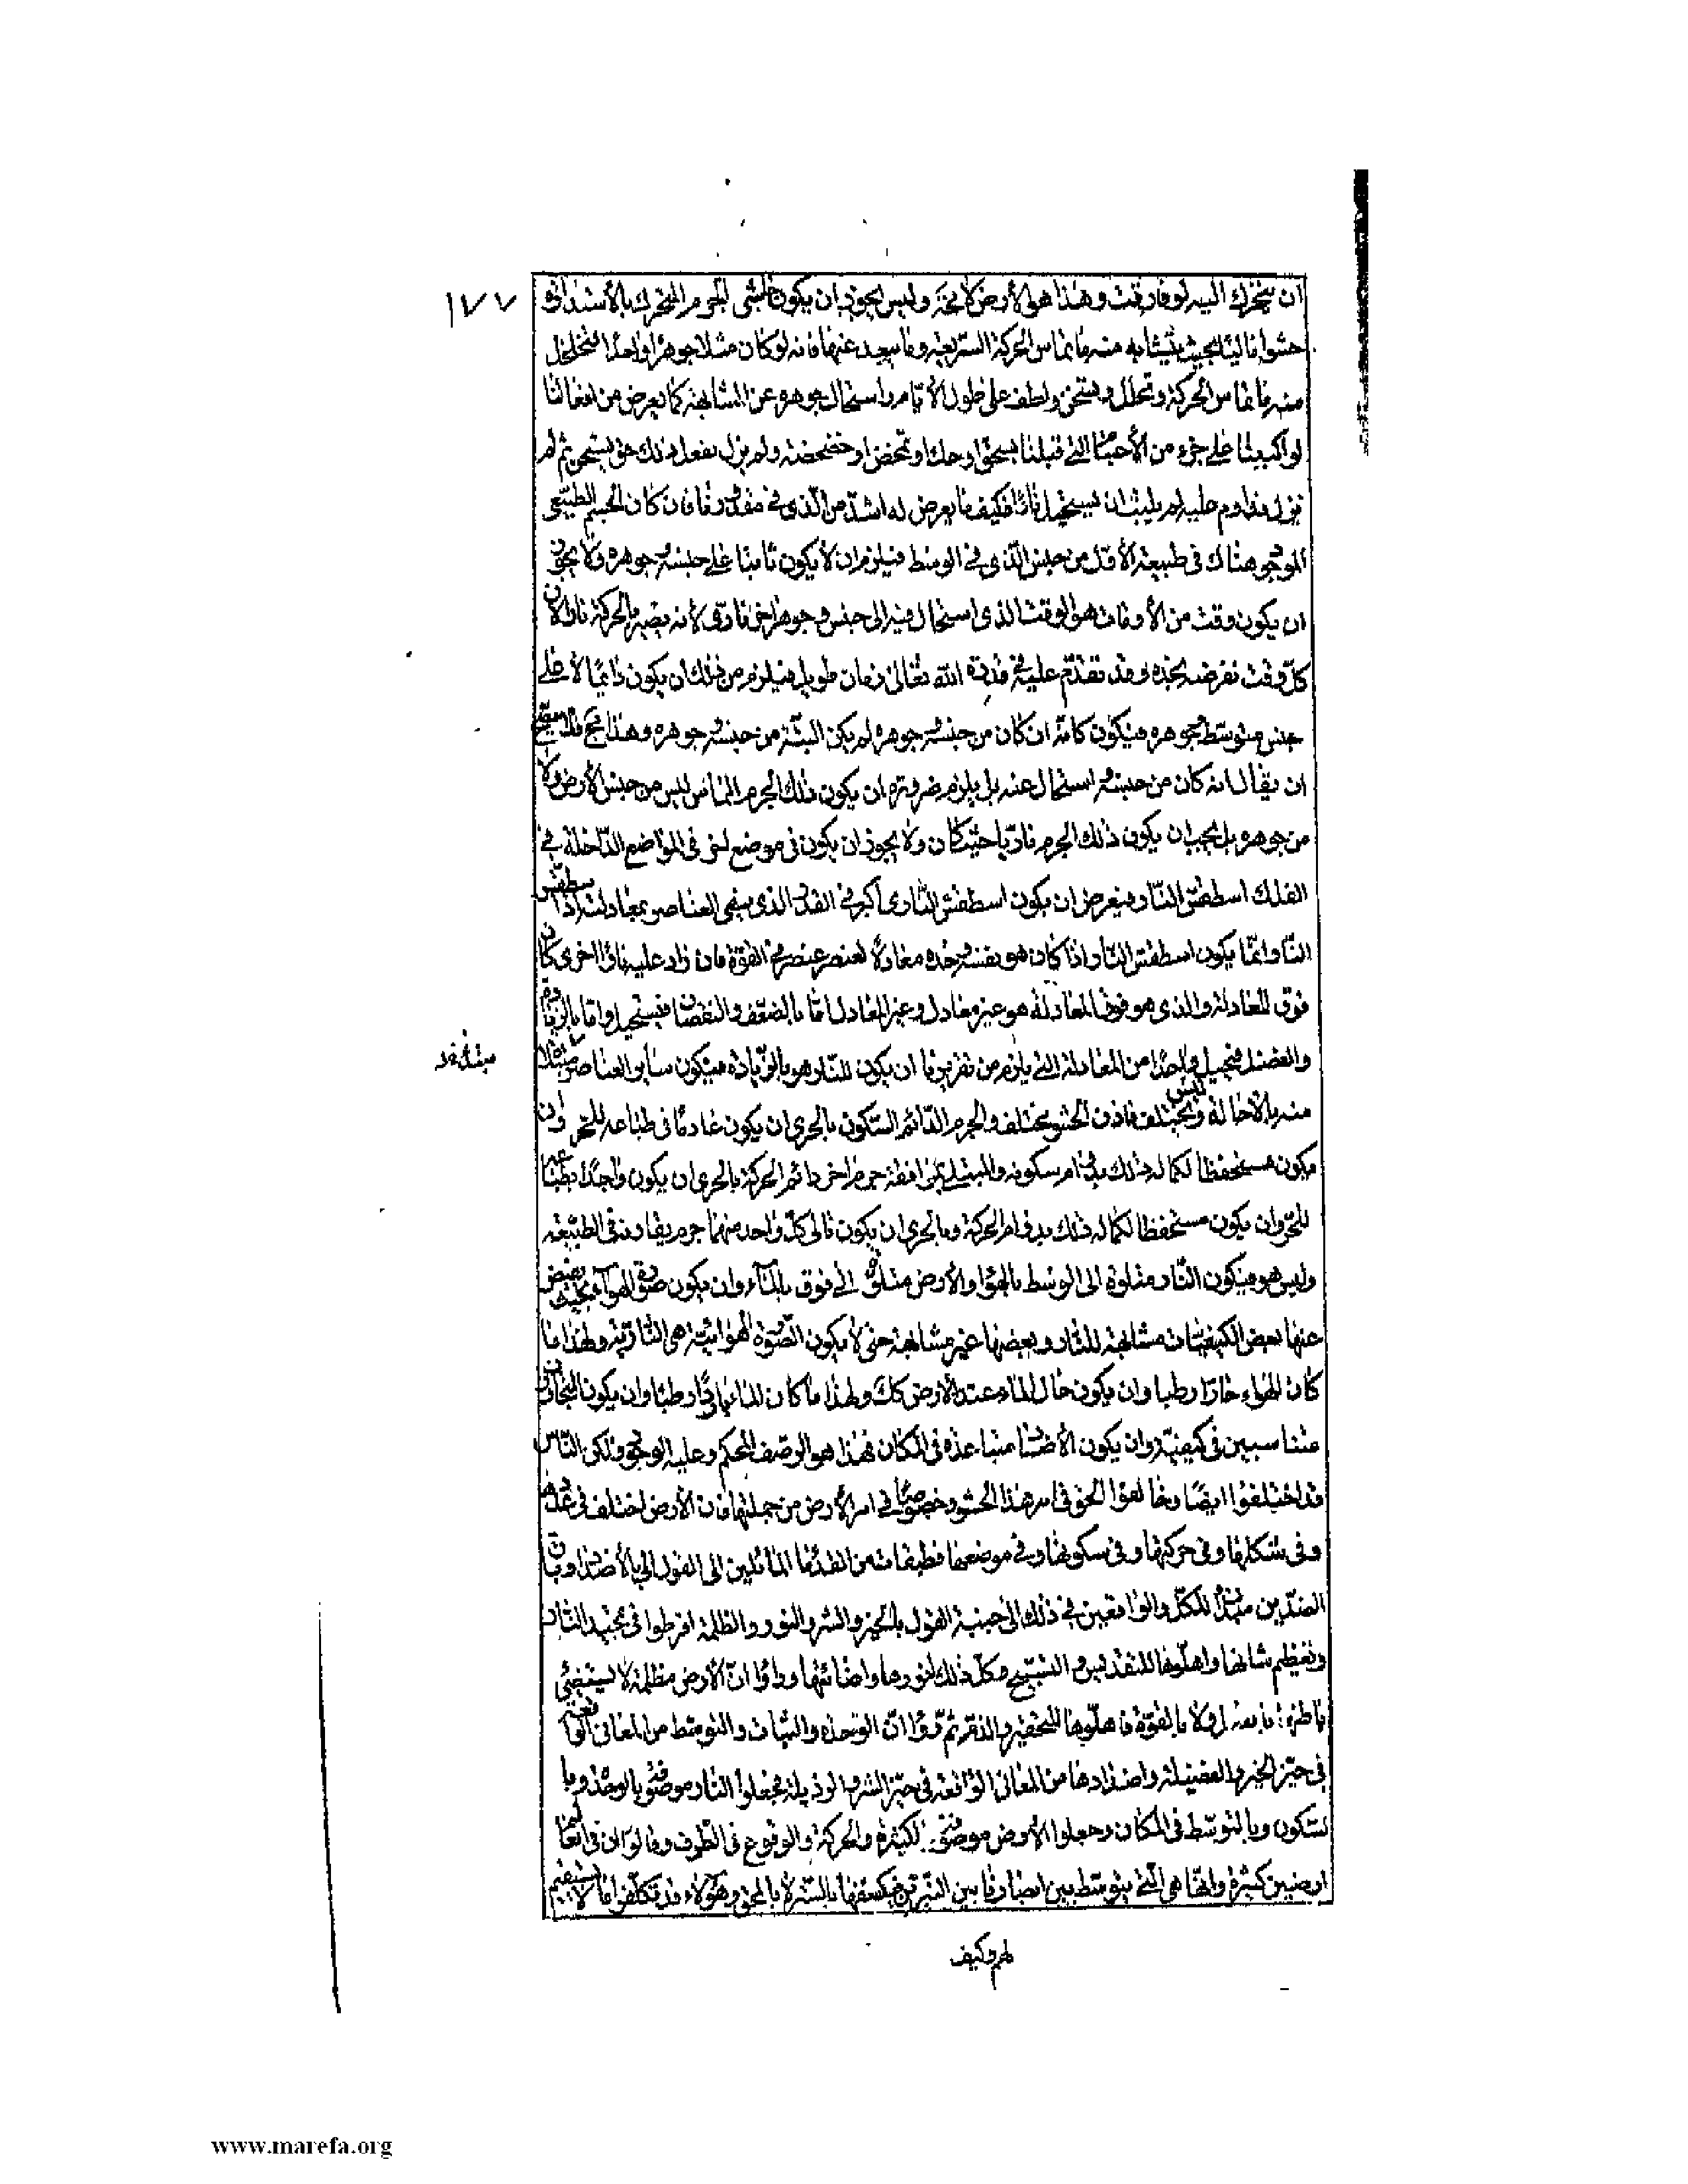 ١٧٧
ان يتحرك اليه لو فارقت وهذا هو الأرض لا محة وليس يجوز ان يكون الجرم المتحرك بالأستدارة
حشوا تاليا بحيث يتشابه منه ما يماس الحركة السريعة وما يبعد عنها فانه لو كان مثلا جوهرا واحدا
منه ما يماس الحركة وتحلل وسخن ولطف على طول الأيام واستحال جوهره عن المشابهة كما يعرض من افعالنا
لو اكببنا على جزء من الأجسام التي قبلنا بسحق او حك او تمخض او خضخضة ولم يزل يفعل ذلك حتى يسخن ثم لم
نزل نداوم عليه لم يلبث ان يستحيل نارا فكيف ما يعرض له اشد من الذى في مقدورنا فان كان الجسم الطبيعى
الموجود هناك فى طبيعة الأول من جنس الذى في الوسط فيلزم ان لا يكون ثابتا على جنسه وجوهره ولا يجوز
ان يكون وقت من الأوقات هو الوقت الذى استحال فيه الى جنس وجوهر اخر نارى لأنه يصير بالحركة نارا لأن
كل وقت نفرضه نجده وقد تقدم عليه في قدرة الله تعالى زمان طويل فيلزم من ذلك ان يكون دائما لا على
جنس متوسطه وجوهره فيكون كانه ان كان من جنسه وجوهره لم يكن البتة من جنسه وجوهره وهذا مح فلا يصح
ان يقال انه كان من جنسه ثم استحال عنه بل يلزم ضرورة ان يكون ذلك الجرم المماس ليس من جنس الأرض ولا
من جوهره بل يجب ان يكون ذلك الجرم ناريا حيث كان ولا يجوز ان يكون في موضع اخر فى المواضع الداخلة في
الفلك اسطقس النار فيعرض ان يكون اسطقس النارى أكبر في القدر الذى يبقى العناصر بمعادلته اذ اسطقس
النار وانما يكون اسطقس النار اذا كان هو بنفسه وحده معادلا لعنصر عنصر في القوة فان زاد عليه نار اخرى كان
فوق المعادلة والذى هو فوق المعادلة هو غير معادل وغير المعادل اما بالضعف والنقصان فيستحيل واما بالزيادة
والفضل فيحيل واحدا من المعادلة التي يلزم من تقريرنا ان يكون للنار هو بالزيادة فيكون سائر العناصر
منه بالأحالة وليس يختلف فاذن الحشو مختلف والجرم الدائم السكون بالحرى ان يكون عادما فى طباعه للحر وان
يكون مستحفظا لكماله ذلك بدوام سكونه والمبتلى بمرافقة جرم اخر دائم الحركة بالحرى ان يكون واجدا بطباعه
للحر وان يكون مستحفظا لكماله ذلك بدوام الحركة وبالحرى ان يكون تالى كل واحد منهما جرم يقاربه فى الطبيعة
وليس هو فيكون النار متلوة الى الوسط بالهواء والأرض متلوة الى فوق بالماء وان يكون صورة الهواء بحيث يفيض
عنها بعض الكيفيات مشابهة للنار وبعضها غير مشابهة حتى لا يكون الصورة الهوائية هى النارية ولهذا ما
كان الهواء حارا رطبا وان يكون حال الماء عند الأرض كك ولهذا ما كان الماء باردا رطبا وان يكون المتجاوران
متناسبين فى كيفية وان يكون الأضداد متباعدة فى المكان فهذا هو الوصف المحكم وعليه الوجود ولكن الناس
قد اختلفوا ايضا وخالفوا الحق فى امر هذا الحشو وخصوصا في امر الأرض من جملتها فان الأرض اختلف فى عددها
وفى شكلها وفى حركتها وفى سكونها وفي موضعها فطبقات من القدماء المائلين الى القول بالأضداد وبأن
الضدين مبدأ للكل والواقعين في ذلك الى جنبة القول بالخير والشر والنور والظلمة افرطوا فى تمجيد النار
وتعظيم شانها واهلوها للتقديس والتسبيح وكل ذلك لنورها واضائتها وراوا ان الأرض مظلمة لا يستضئ
باطنها بالفعل ولا بالقوة فاهلوها للتحقير والذم ثم راوا ان الوحدة والثبات والتوسط من المعانى الواقعة
فى حيز الخير والفضيلة واضدادها من المعانى الواقعة فى حيز الشر والرذيلة فجعلوا النار موصوفة بالوحدة وبا
لسكون وبالتوسط فى المكان وجعلوا الأرض موصوفة بالكثرة والحركة والوقوع فى الطرف وقالوا ان فى العالم
ارضين كثيرة وانها هى التي يتوسط بين ابصارنا وبين النيرين فيكسفها بالستر لا بالمحق وهؤلاء قد تكلفوا ما لا يستقيم
لهم وكيف
www.marefa.org